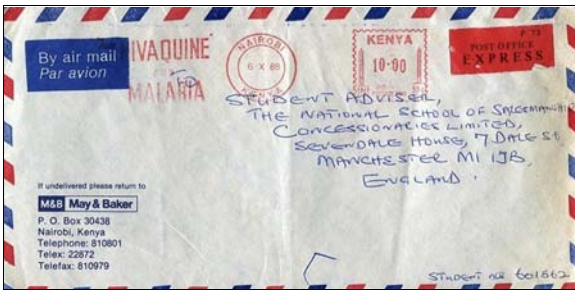 By air mail
Par avion
NIVAQUINE
FOR
MALARIA
NAIROBI
6·X 88
KENYA
KENYA
10·00
P 73
POST OFFICE
EXPRESS
STUDENT ADVISER,
THE NATIONAL SCHOOL OF SALESMANSHIP
CONCESSIONARIES LIMITED,
SEVENDALE HOUSE, 7 DALE St.
MANCHESTER M1 1JB,
ENGLAND.
If undelivered please return to
M&B May & Baker
P. O. Box 30438
Nairobi, Kenya
Telephone: 810801
Telex: 22872
Telefax: 810979
STUDENT No 601662